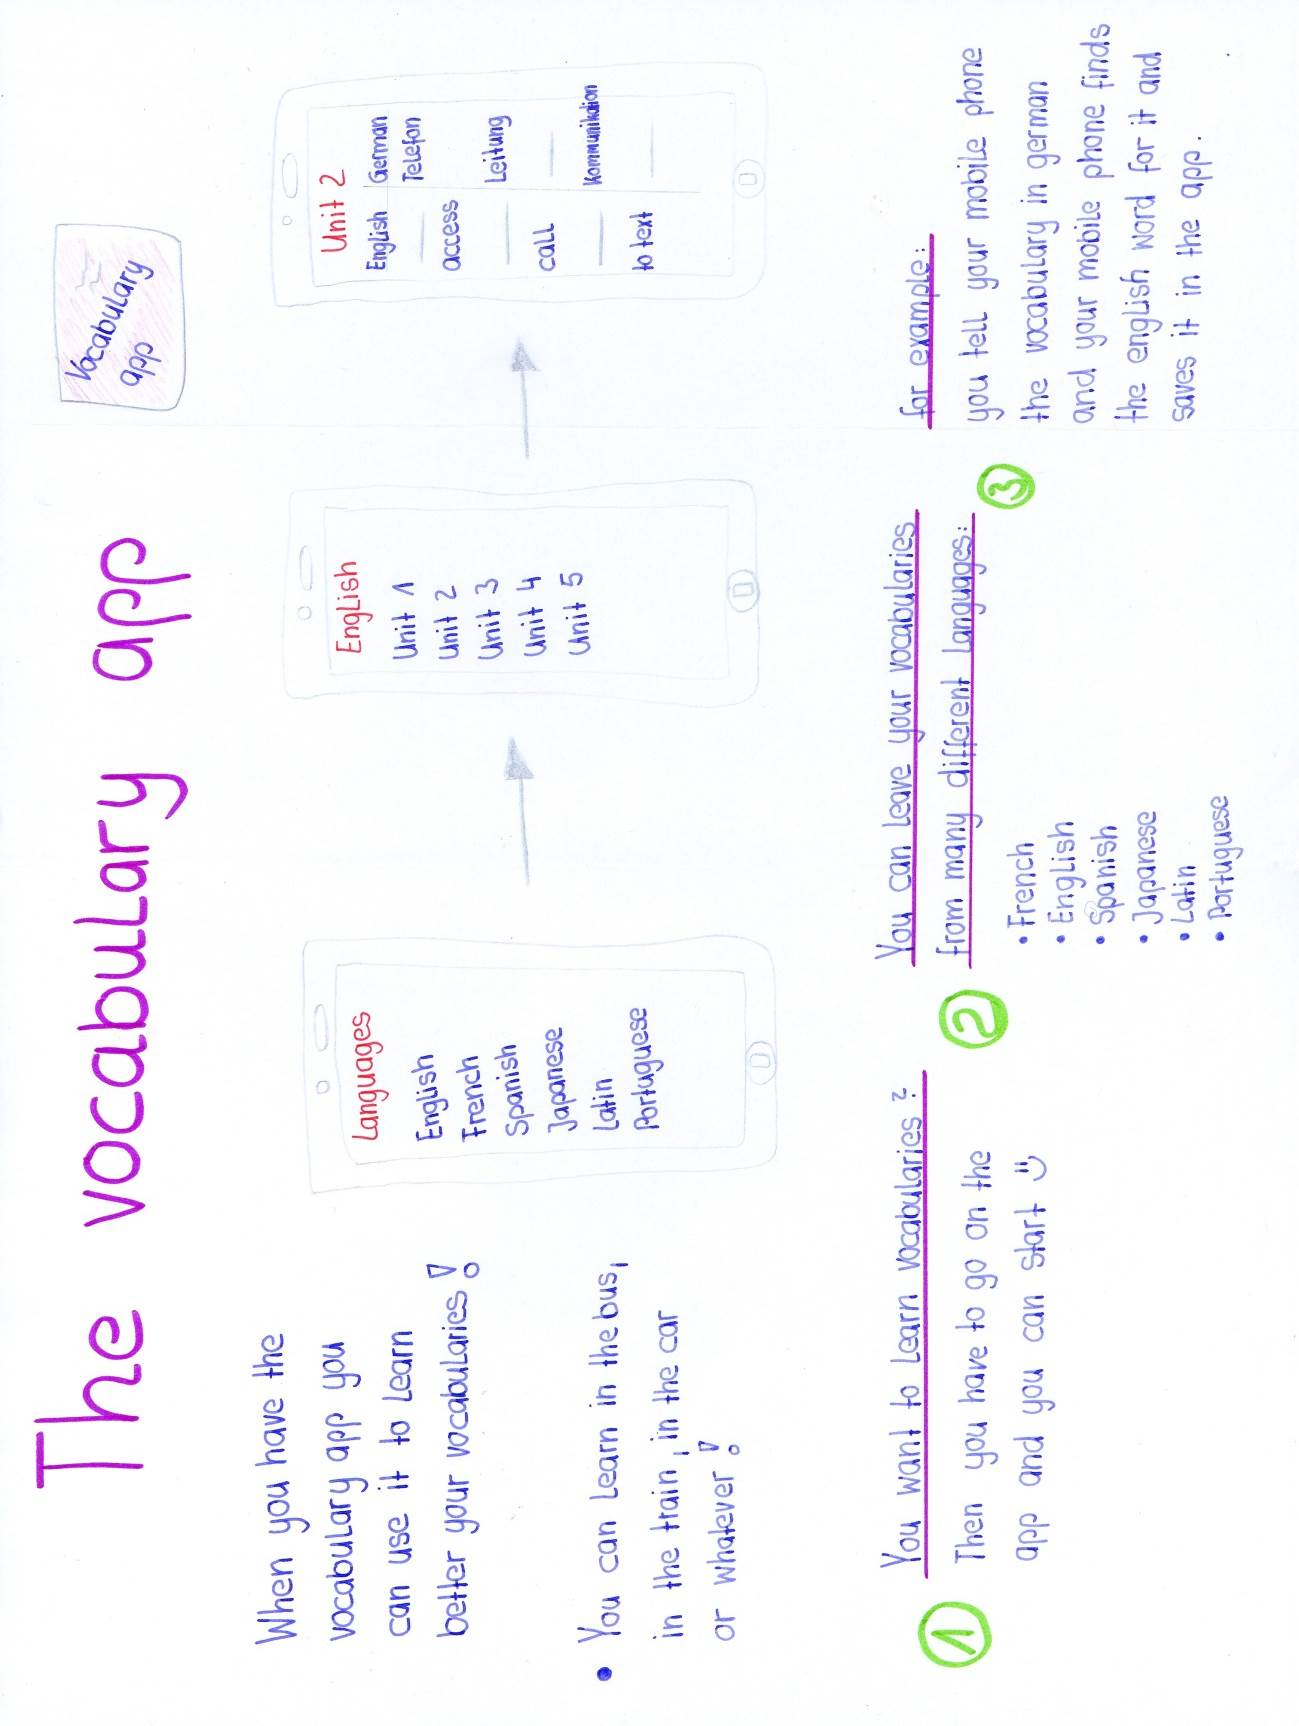 The vocabulary app
Vocabulary
app
When you have the
vocabulary app you
can use it to learn
better your vocabularies!
• You can learn in the bus,
in the train, in the car
or whatever!
Languages
English
French
Spanish
Japanese
Latin
Portuguese
English
Unit 1
Unit 2
Unit 3
Unit 4
Unit 5
Unit 2
English German
Telefon
access
Leitung
call
Kommunikation
to text
1 You want to learn vocabularies?
Then you have to go on the
app and you can start
2 You can leave your vocabularies
from many different languages:
• French
• English
• Spanish
• Japanese
• Latin
• Portuguese
3 for example:
you tell your mobile phone
the vocabulary in german
and your mobile phone finds
the english word for it and
saves it in the app.